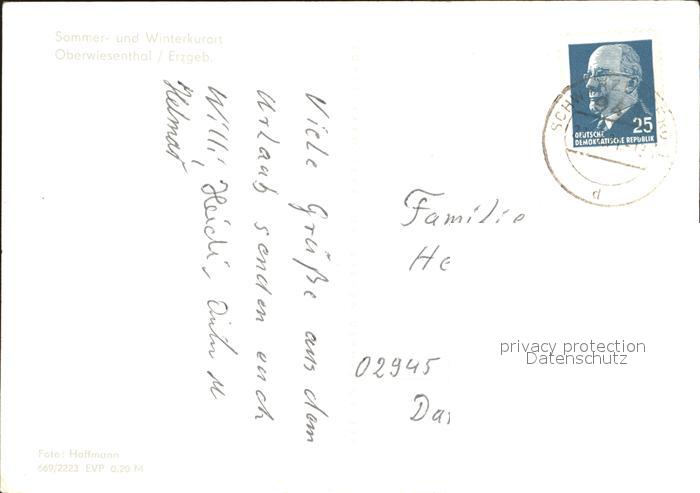 Sommer- und Winterkurort
Oberwiesenthal / Erzgeb.
Viele Grüße aus dem
Urlaub senden euch
Willi, Heidi,
Helmar
25
DEUTSCHE
DEMOKRATISCHE REPUBLIK
SCHW
d
Familie
He
privacy protection
Datenschutz
02945
Da
Foto: Hoffmann
669/2223 EVP 0,20 M